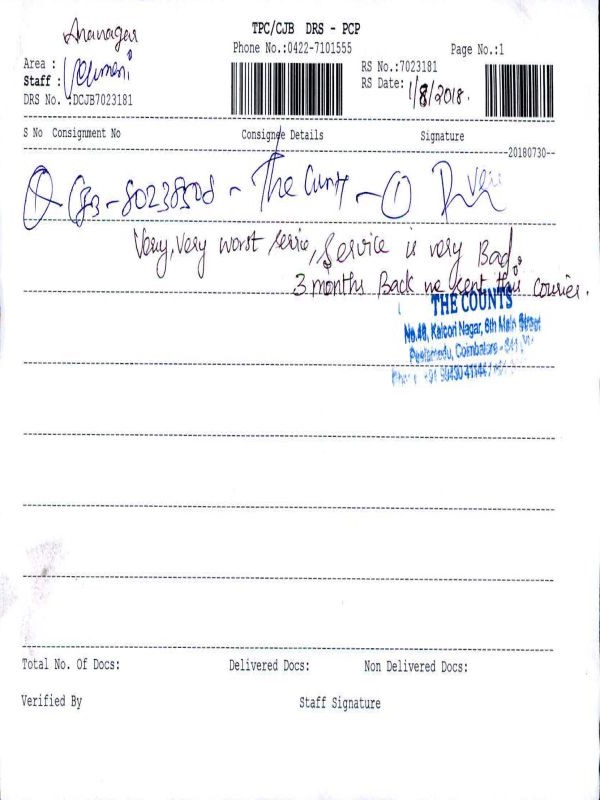 TPC/CJB DRS - PCP
Phone No.:0422-7101555
Page No.:1
Area :
Staff :
DRS No. :DCJB7023181
RS No.:7023181
RS Date: 1/8/2018.
S No Consignment No Consignee Details Signature
20180730
The
Very, very worst service, Service is very Bad.
3 months Back we sent this courier.
THE COUNTS
No.48, Nagar, 6th Main Street
Peelamedu, Coimbatore - 641
Total No. Of Docs: Delivered Docs: Non Delivered Docs:
Verified By Staff Signature